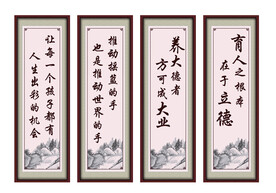 育人之根本
在于立德
养大德者
方可成大业
推动摇篮的手
也是推动世界的手
让每一个孩子都有
人生出彩的机会